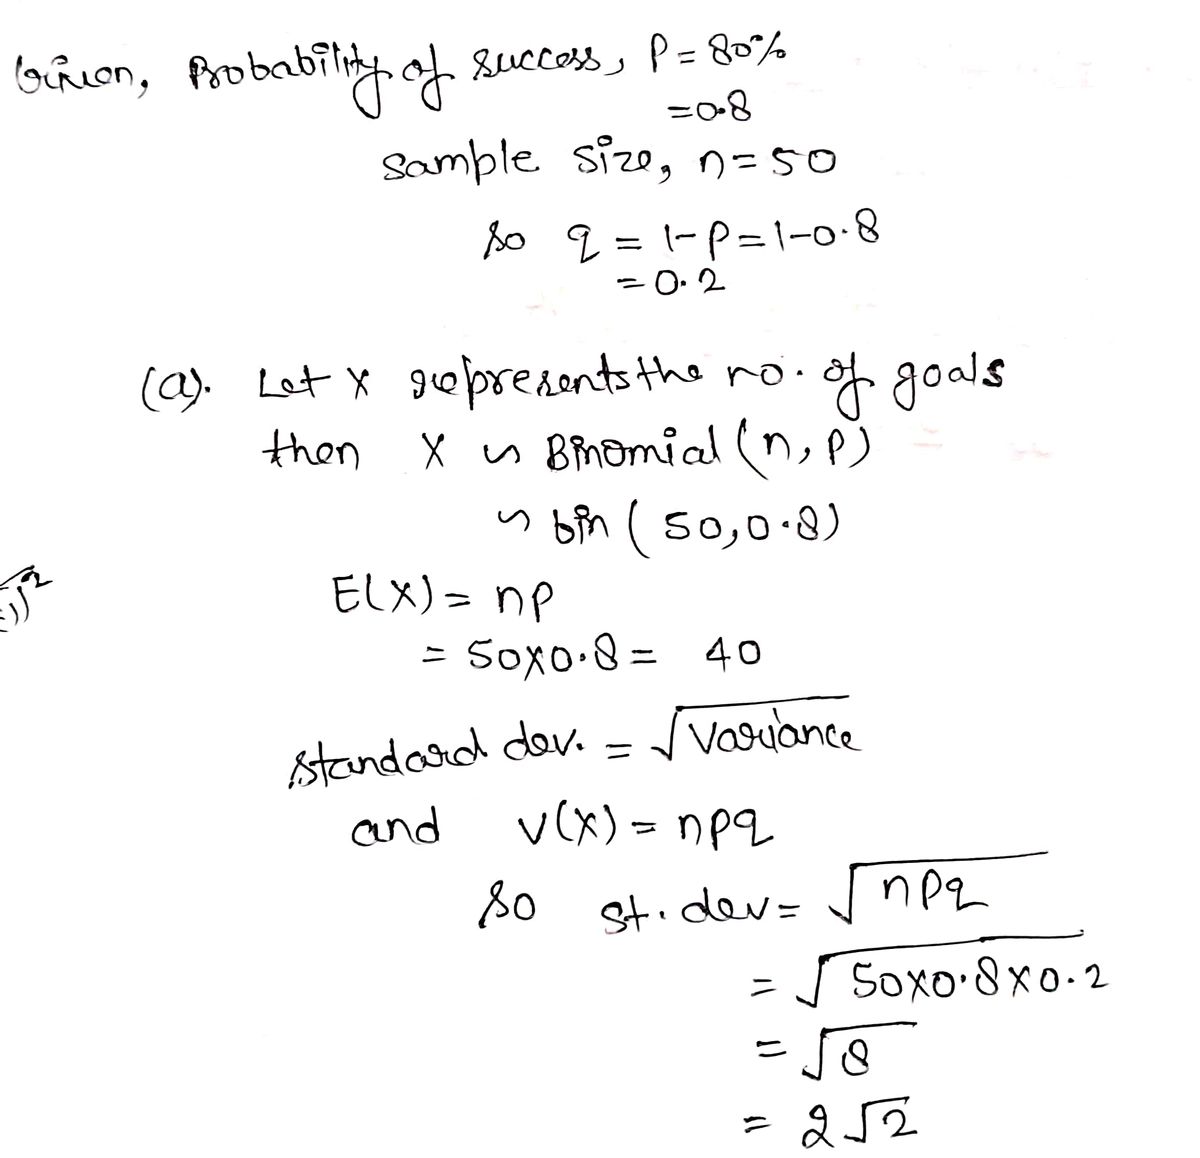 Given, Probability of success, P = 80%
= 0.8
Sample size, n = 50
So q = 1-P = 1-0.8
= 0.2
(a). Let X represents the no. of goals
then X ~ Binomial (n, P)
~ bin ( 50, 0.8)
E(X) = np
= 50x0.8 = 40
standard dev. = √Variance
and V(X) = npq
So st. dev = √npq
= √50x0.8x0.2
= √8
= 2√2